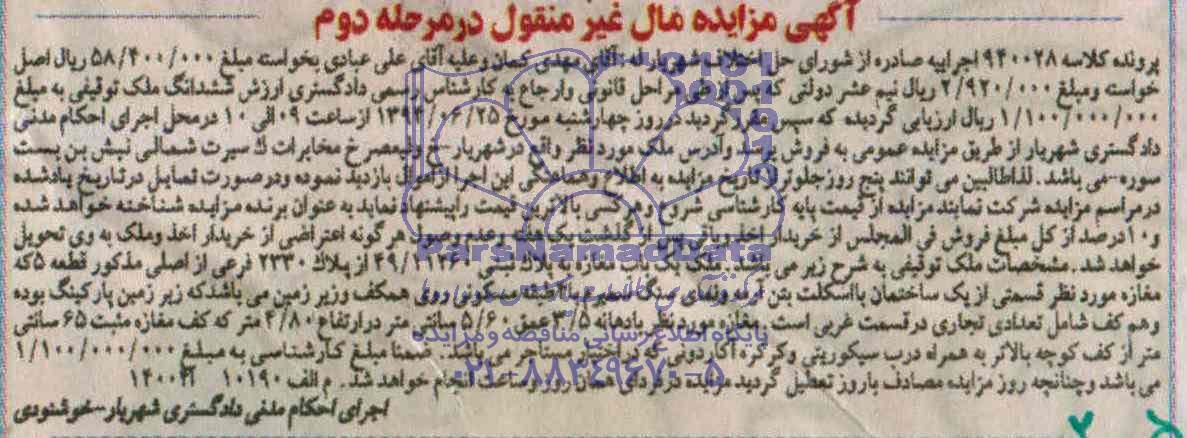 آگهی مزایده مال غیر منقول در مرحله دوم
پرونده کلاسه ۹۴۰۰۲۸ اجراییه صادره از شورای حل اختلاف شهریار له آقای مهدی کمان وعلیه آقای علی عبادی بخواسته مبلغ ۵۸/۴۰۰/۰۰۰ ریال اصل
خواسته ومبلغ ۲/۹۲۰/۰۰۰ ریال نیم عشر دولتی که پس از طی مراحل قانونی وارجاع به کارشناس رسمی دادگستری ارزش ششدانگ ملک توقیفی به مبلغ
۱/۱۰۰/۰۰۰/۰۰۰ ریال ارزیابی گردیده که سپس مقرر گردید در روز چهارشنبه مورخ ۱۳۹۴/۰۶/۲۵ از ساعت ۰۹ الی ۱۰ در محل اجرای احکام مدنی
دادگستری شهریار از طریق مزایده عمومی به فروش برسد وآدرس ملک مورد نظر واقع در شهریار-خ ولیعصر خ مخابرات ک سیرت شمالی نبش بن بست
سوره-می باشد. لذا طالبین می توانند پنج روز جلوتر از تاریخ مزایده به اطلاع و هماهنگی این اجرا از اموال بازدید نموده ودر صورت تمایل در تاریخ یادشده
در مراسم مزایده شرکت نمایند مزایده از قیمت پایه کارشناسی شروع وهرکسی بالاترین قیمت را پیشنهاد نماید به عنوان برنده مزایده شناخته خواهد شده
و۱۰درصد از کل مبلغ فروش فی المجلس از خریدار اخذ و باقی پس از گذشت یک هفته وعدم وصول هر گونه اعتراضی از خریدار اخذ وملک به وی تحویل
خواهد شد. مشخصات ملک توقیفی به شرح زیر می باشد: ملک یک باب مغازه به پلاک ثبتی ۴۹/ از پلاک ۲۳۳۰ فرعی از اصلی مذکور قطعه ۵که
مغازه مورد نظر قسمتی از یک ساختمان بااسکلت بتن آرمه ونمای سنگ مسکونی روی همکف وزیر زمین می باشدکه زیر زمین پارکینگ بوده
وهم کف شامل تعدادی تجاری در قسمت غربی است. مغازه مورد نظر بادهانه ۳/۵ عمق ۵/۶۰ سانتی متر در ارتفاع ۴/۸۰ متر که کف مغازه مثبت ۶۵ سانتی
متر از کف کوچه بالاتر به همراه درب سیکوریتی وکرکره آکاردئونی که در اختیار مستاجر می باشد. ضمنا مبلغ کارشناسی به مبلغ ۱/۱۰۰/۰۰۰/۰۰۰
می باشد وچنانچه روز مزایده مصادف باروز تعطیل گردید مزایده در فردای همان روز و ساعت انجام خواهد شد. م الف ۱۰۱۹۰
اجرای احکام مدنی دادگستری شهریار-خوشنودی
ParsNamadData
پایگاه اطلاع رسانی مناقصه و مزایده
۰۲۱-۸۸۳۴۹۶۷۰-۵